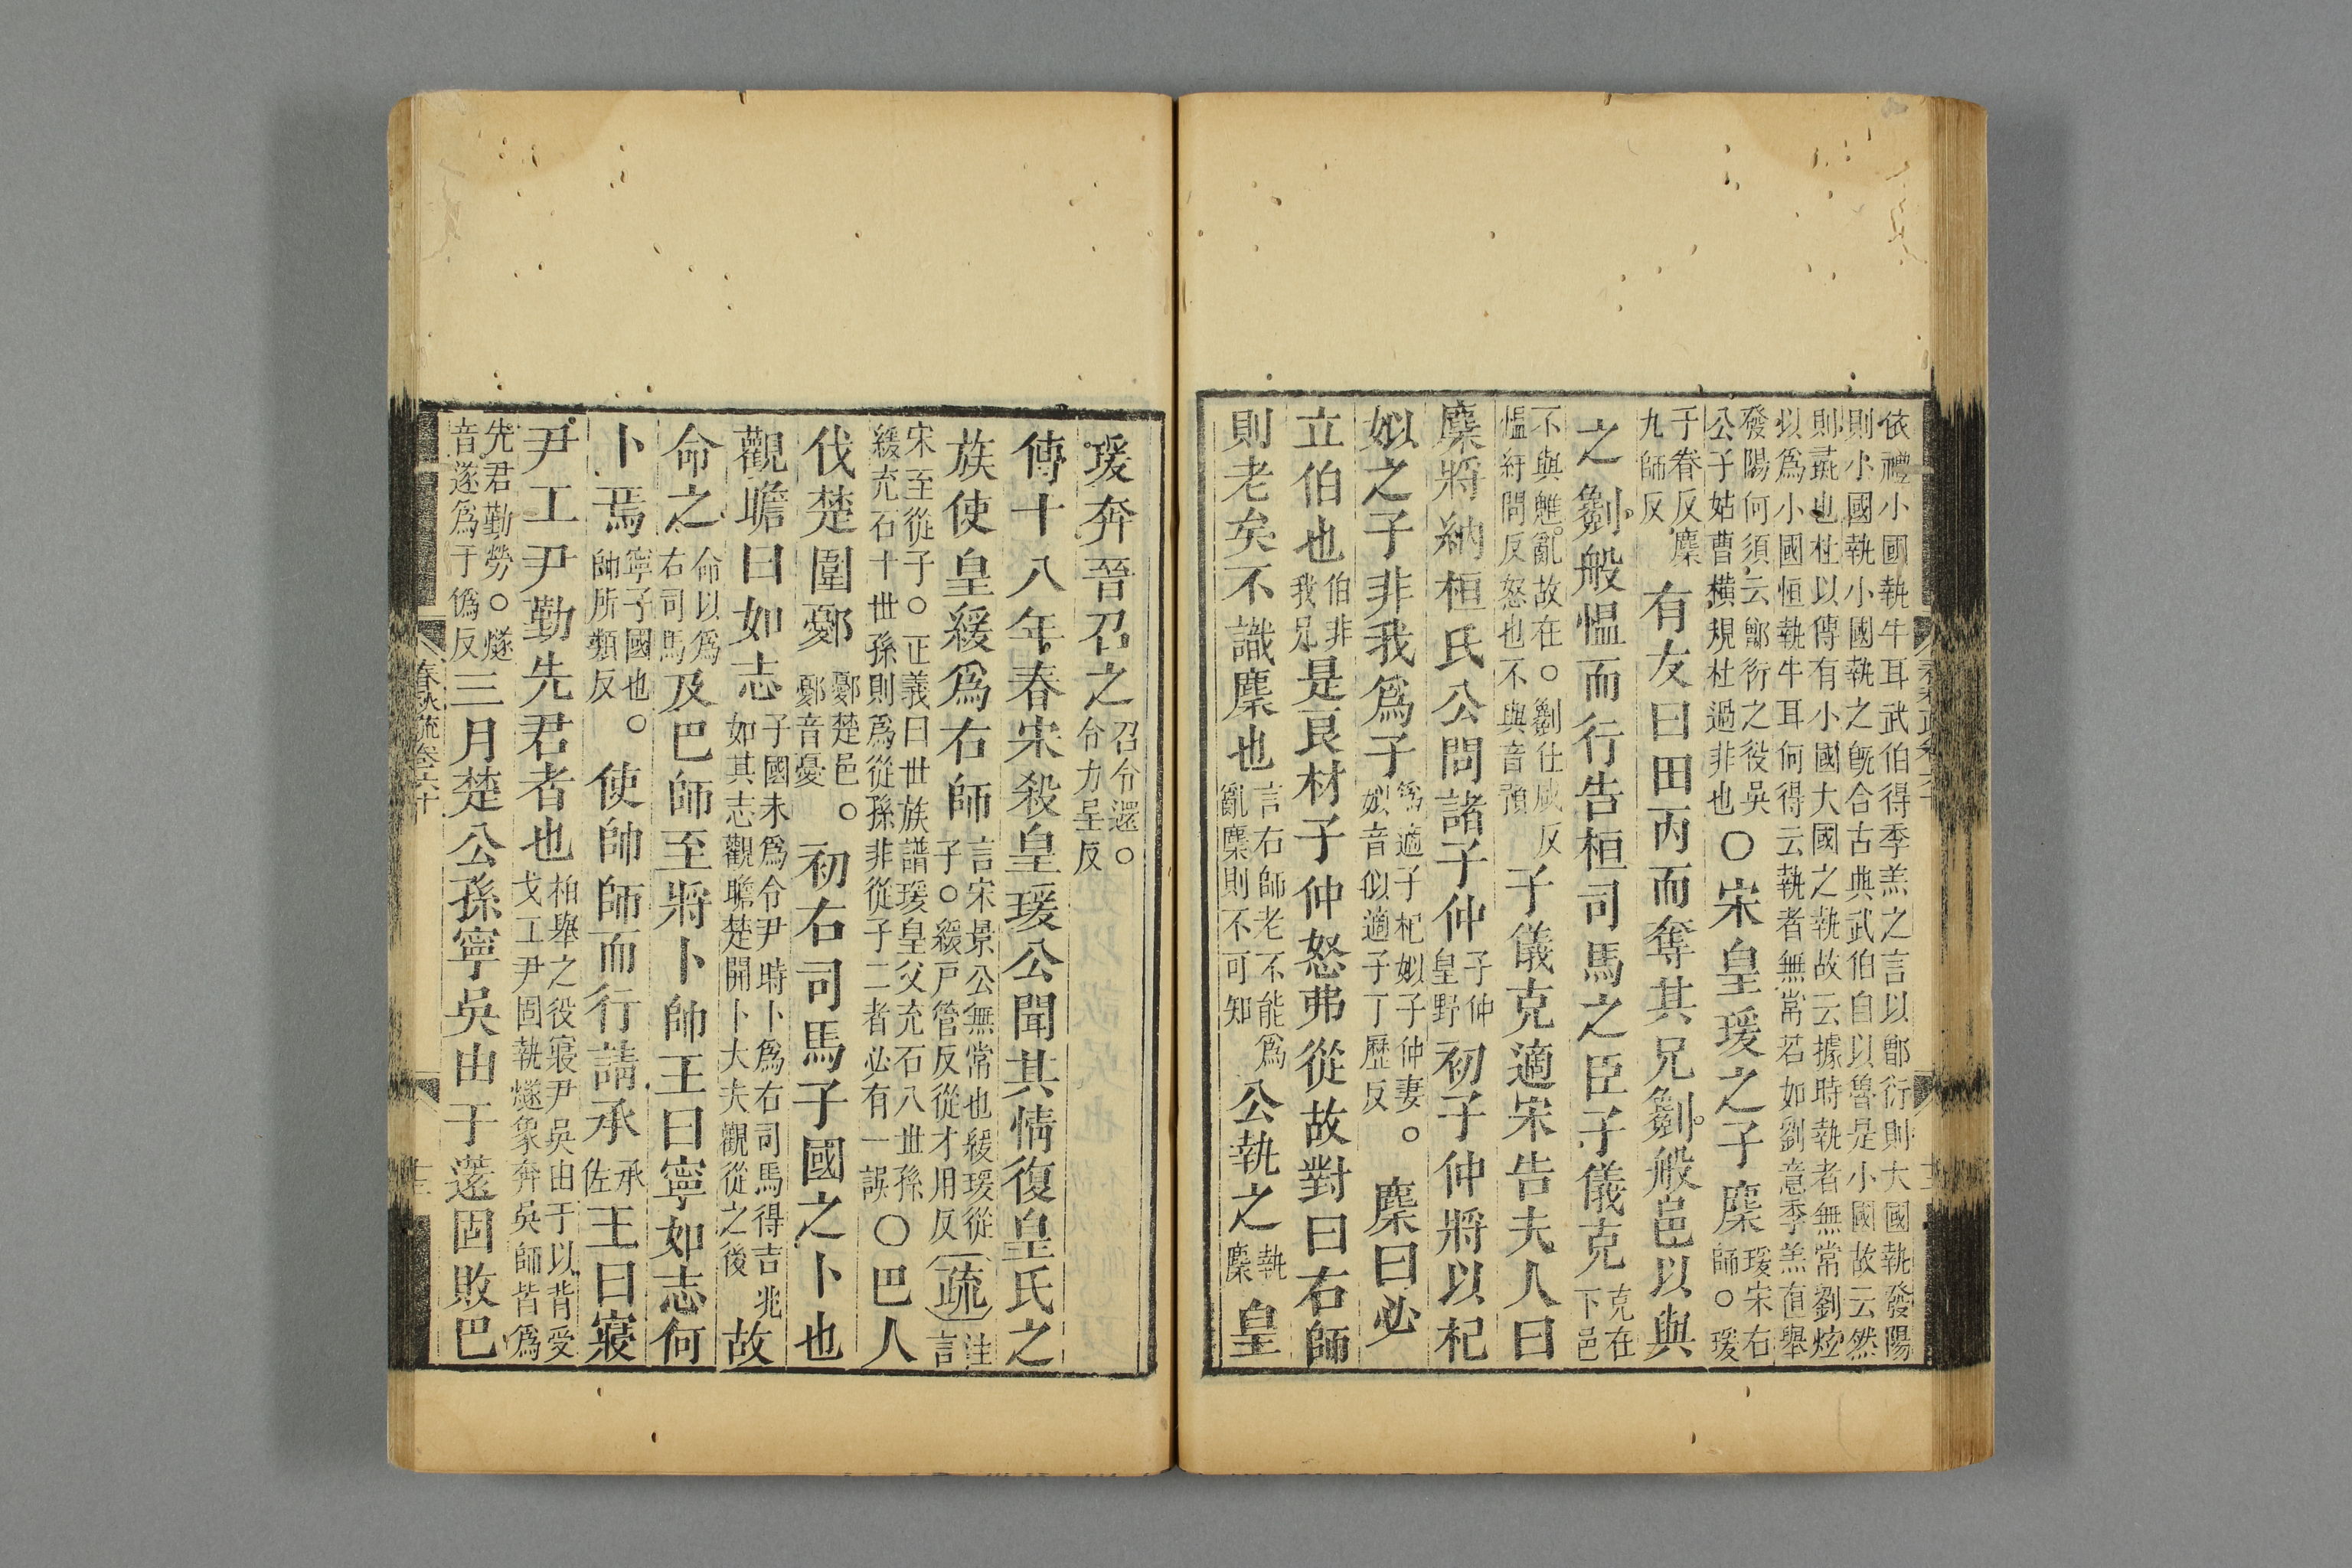 依禮小國執牛耳武伯得季羔之言以鄫衍則大國執發陽
則小國執小國執之旣合古典武伯自以魯是小國故云然
則蒙也杜以傳有小國大國之執故云據時執者無常劉炫
以爲小國恒執牛耳何得云執者無常若如劉意季羔直舉
發陽何須云鄫衍之役吳
公子姑曹横規杜過非也
○宋皇瑗之子麇
瑗宋右
師○瑗
于眷反麇
九師反
有友曰田丙而奪其兄劖般邑以與
之劖般慍而行告桓司馬之臣子儀克
克在
下邑
不與魋亂故在○劖仕咸反
慍紆問反怒也不與音預
子儀克適宋告夫人曰
麇將納桓氏公問諸子仲
子仲
皇野
初子仲將以杞
姒之子非我爲子
爲適子杞姒子仲妻○
姒音似適子丁歷反
麇曰必
立伯也
伯非
我兄
是良材子仲怒弗從故對曰右師
則老矣不識麇也
言右師老不能爲
亂麇則不可知
公執之
執
麇
皇
瑗奔晉召之
召令還○
令力呈反
傳十八年春宋殺皇瑗公聞其情復皇氏之
族使皇緩爲右師
言宋景公無常也緩瑗從
子○緩戸管反從才用反
疏
注
言
宋至從子○正義曰世族譜瑗皇父充石八世孫
緩充石十世孫則爲從孫非從子二者必有一誤
○巴人
伐楚圍鄾
鄾楚邑○
鄾音憂
初右司馬子國之卜也
觀瞻曰如志
子國未爲令尹時卜爲右司馬得吉兆
如其志觀瞻楚開卜大夫觀從之後
故
命之
命以爲
右司馬
及巴師至將卜帥王曰寧如志何
卜焉
寧子國也○
帥所類反
使帥師而行請承
承
佐
王曰寢
尹工尹勤先君者也
柏舉之役寢尹吳由于以背受
戈工尹固執燧象奔吳師皆爲
先君勤勞○燧
音遂爲于僞反
三月楚公孫寧吳由于薳固敗巴
春秋疏卷六十
十三